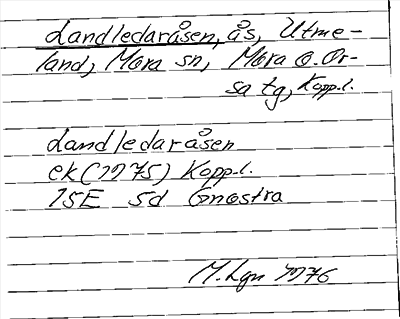 Landledaråsen, ås, Utme-
land, Mora sn, Mora o. Or-
sa tg, Kopp.l.
Landledaråsen
ek (1975) Kopp.l.
15E 5d Gnostra
M.Lgn 1976